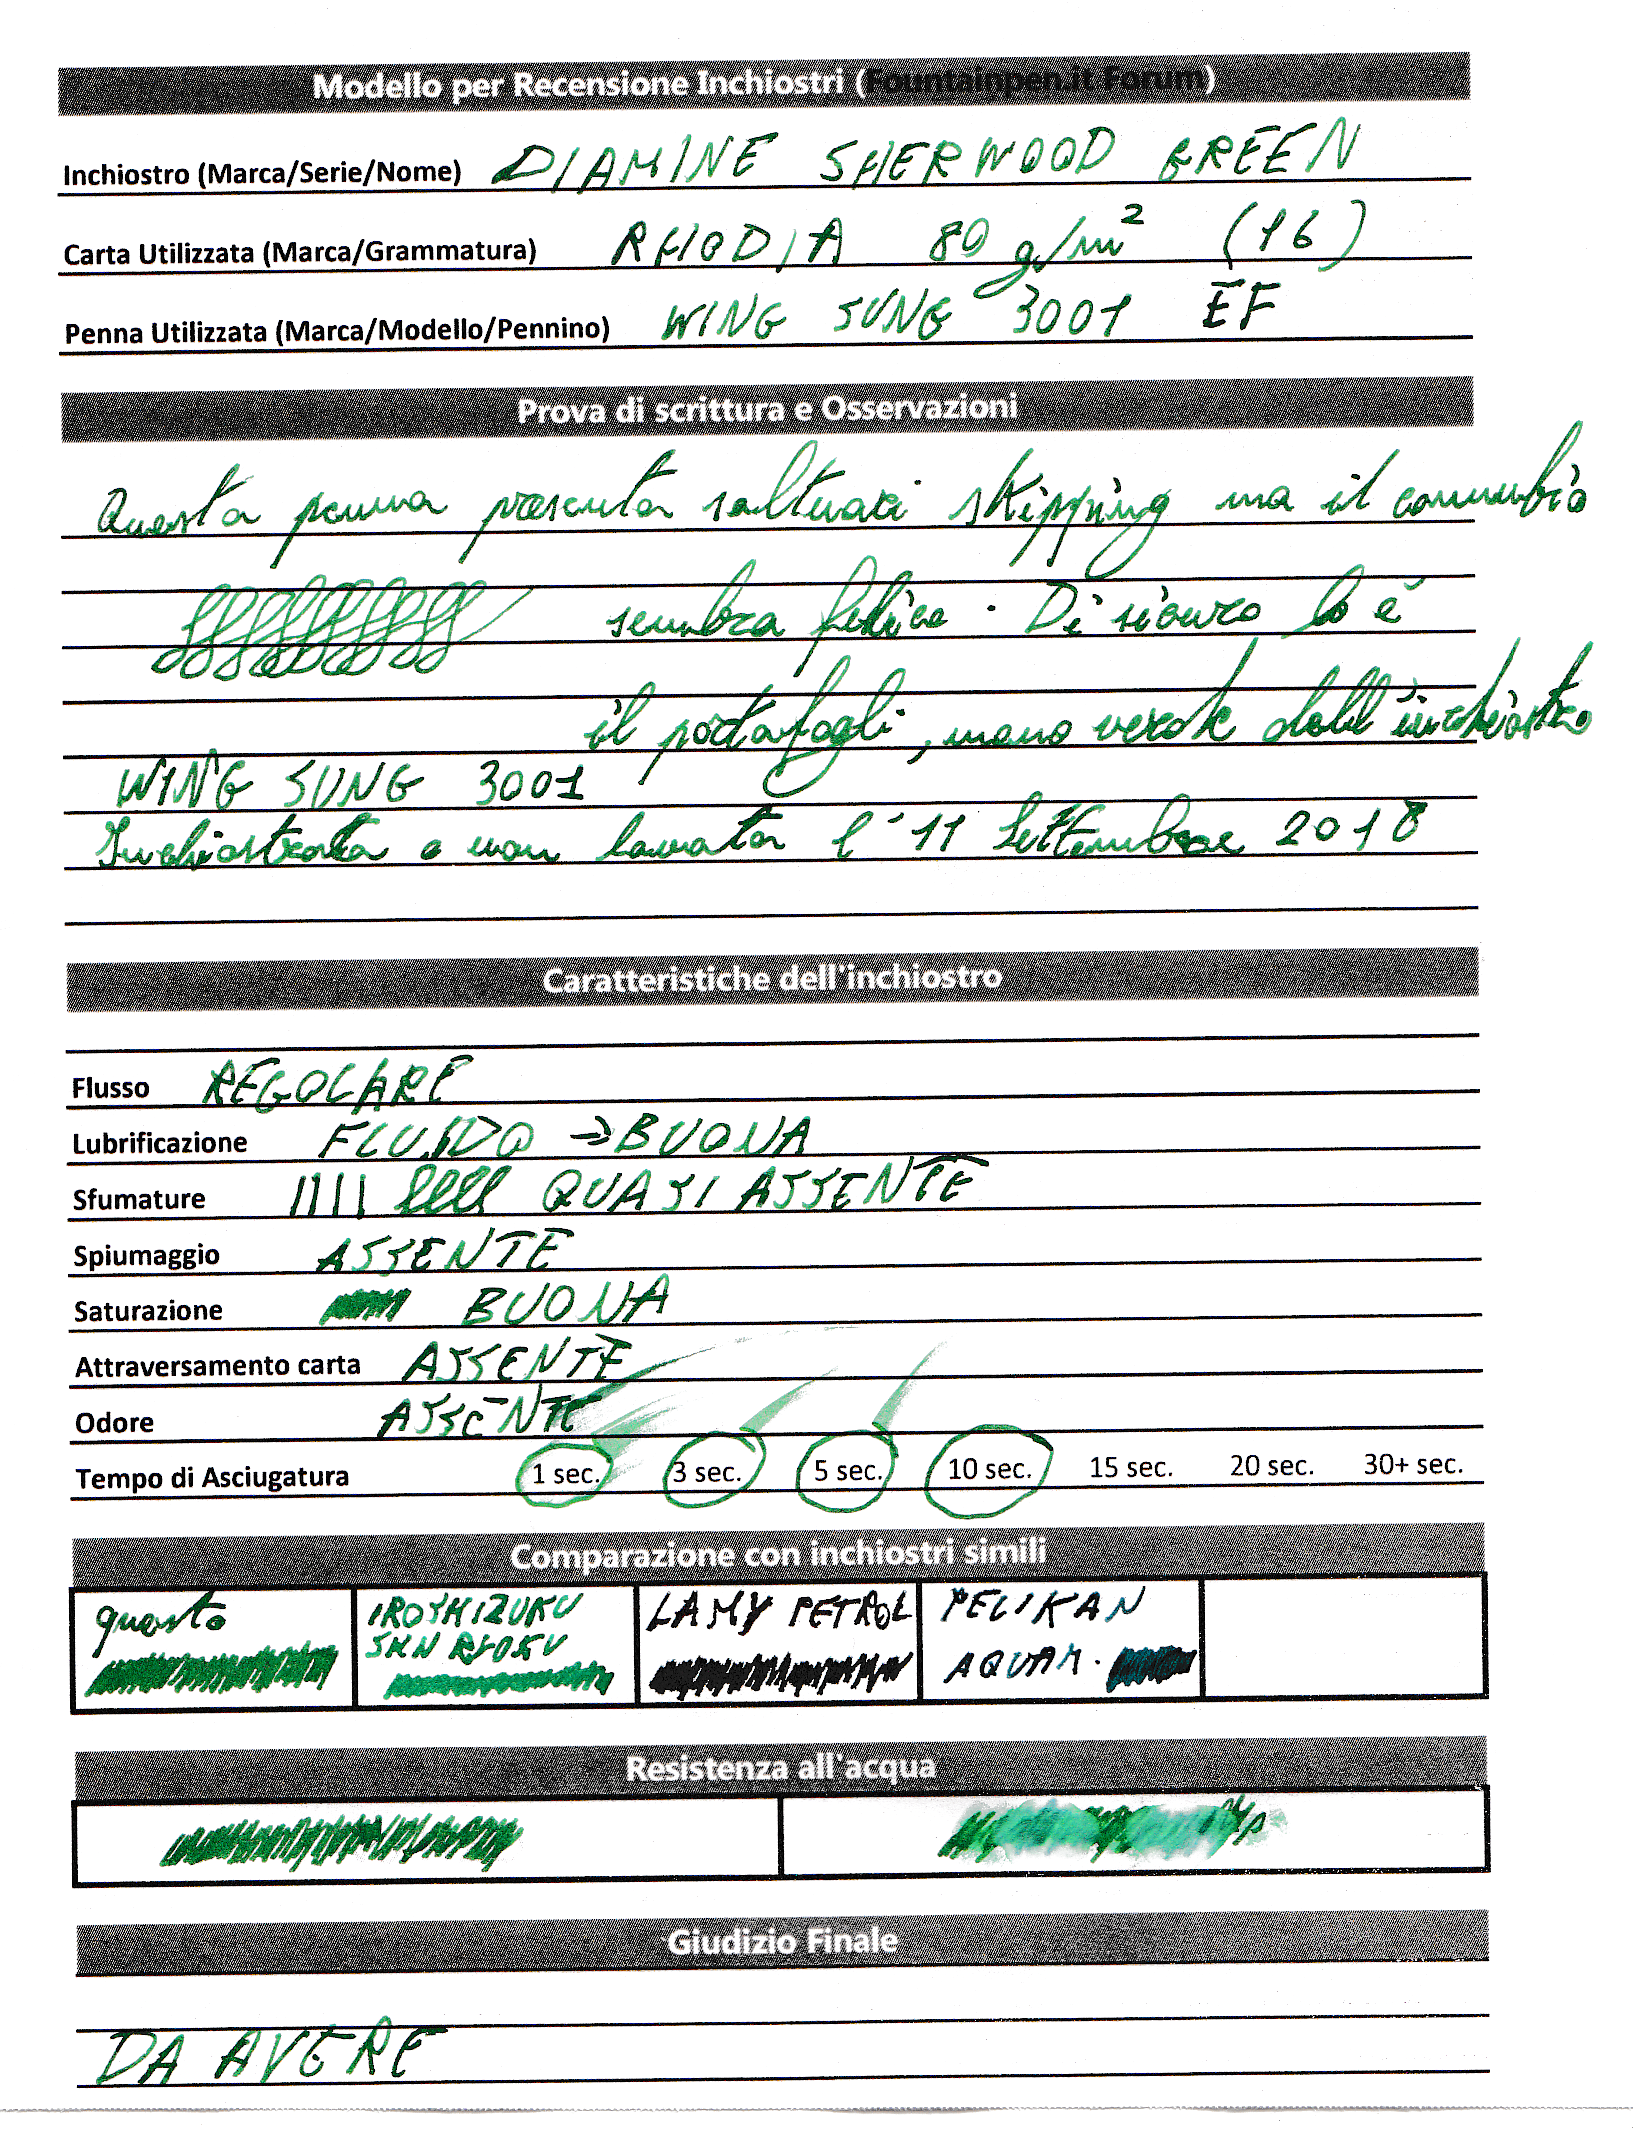 Modello per Recensione Inchiostri (Fountainpen.it Forum)
Inchiostro (Marca/Serie/Nome) DIAMINE SHERWOOD GREEN
Carta Utilizzata (Marca/Grammatura) RHODIA 80 g/m² (16)
Penna Utilizzata (Marca/Modello/Pennino) WING SUNG 3001 EF
Prova di scrittura e Osservazioni
Questa penna presenta saltuari skipping ma il connubio
sembra felice. Di sicuro lo è
il portafogli, meno verde dell'inchiostro
WING SUNG 3001
Inchiostrata e non lavata l'11 Settembre 2018
Caratteristiche dell'inchiostro
Flusso REGOLARE
Lubrificazione FLUIDO → BUONA
Sfumature QUASI ASSENTE
Spiumaggio ASSENTE
Saturazione BUONA
Attraversamento carta ASSENTE
Odore ASSENTE
Tempo di Asciugatura 1 sec. 3 sec. 5 sec. 10 sec. 15 sec. 20 sec. 30+ sec.
Comparazione con inchiostri simili
questo IROSHIZUKU LAMY PETROL PELIKAN
SHN RYOKU AQUAM.
Resistenza all'acqua
Giudizio Finale
DA AVERE